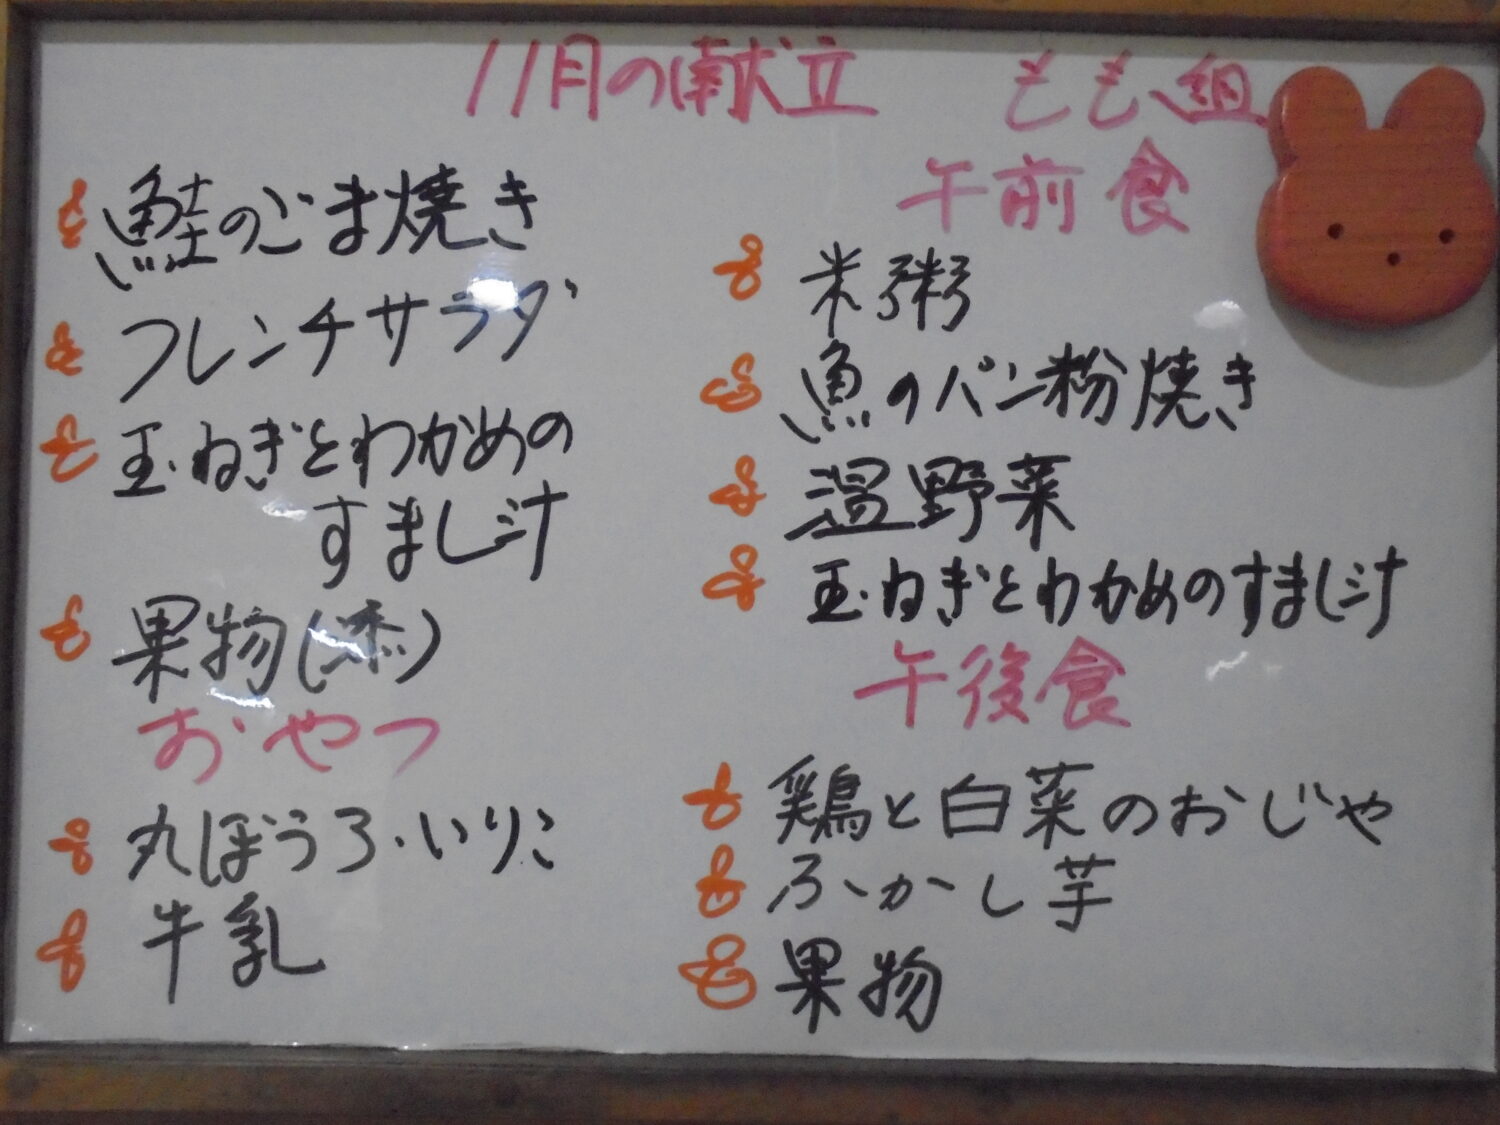 11月の献立
鮭のごま焼き
フレンチサラダ
玉ねぎとわかめの
すまし汁
果物(柿)
おやつ
丸ぼうろ・いりこ
牛乳
もも組
午前食
米粥
魚のパン粉焼き
温野菜
玉ねぎとわかめのすまし汁
午後食
鶏と白菜のおじや
ふかし芋
果物